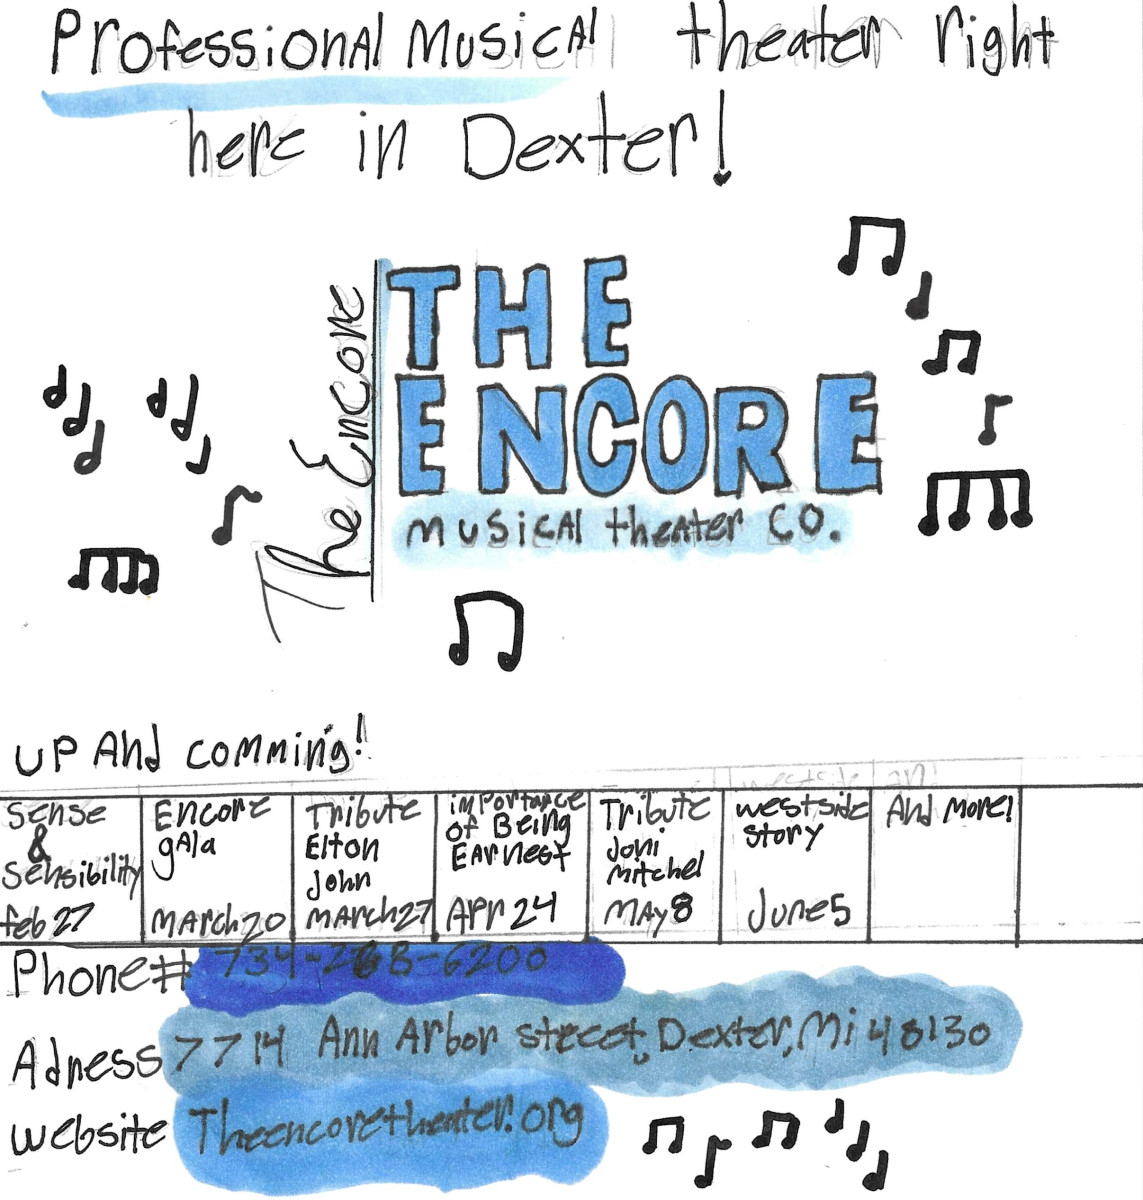 Professional Musical theater right
here in Dexter!
The Encore
THE
ENCORE
musical theater co.
UP And comming!
Sense
&
Sensibility
feb 27
Encore
gala
March 20
Tribute
Elton
John
March 27
importance
of Being
Earnest
Apr 24
Tribute
Joni
Mitchel
May 8
westside
story
June 5
And More!
Phone# 734-268-6200
Adress 7714 Ann Arbor street, Dexter, Mi 48130
website Theencoretheater.org